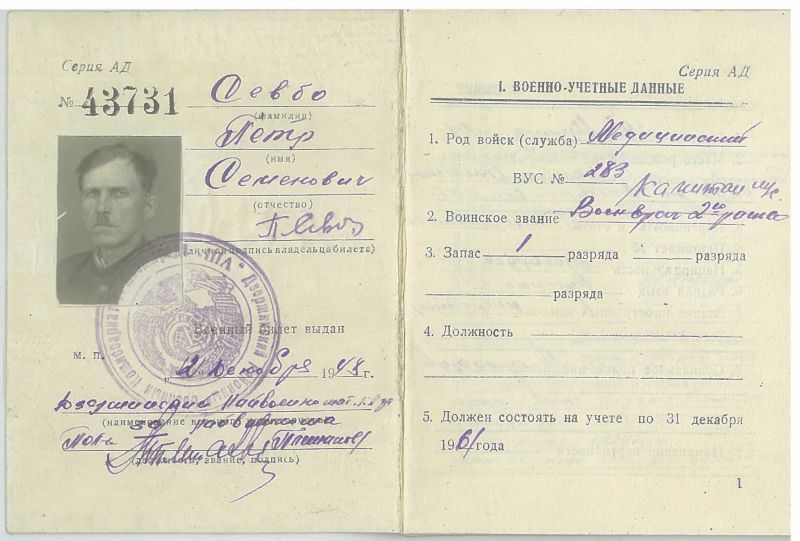 Серия АД
№ 43731
Севбо
(фамилия)
Петр
(имя)
Семенович
(отчество)
(личная подпись владельца билета)
Военный билет выдан
м. п.
„2" декабря 1948 г.
(наименование
(должность, звание, подпись)
Серия АД
I. ВОЕННО-УЧЕТНЫЕ ДАННЫЕ
1. Род войск (служба) Медицинский
ВУС № 283
капитан м/с
2. Воинское звание Военврач 2го ранга
3. Запас 1 разряда разряда
разряда
4. Должность
5. Должен состоять на учете по 31 декабря
1961 года
1